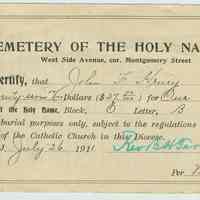 CEMETERY OF THE HOLY NA
West Side Avenue, cor. Montgomery Street
ertify, that John F. Henry
Dollars ($27 ) for One
the Holy Name, Block, Letter, B
burial purposes only, subject to the regulations
of the Catholic Church in this Diocese.
July 26 1911 Rev
Per